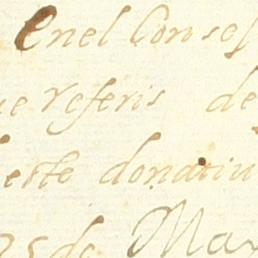 enel Consej
ue referis de
este donatiu
25 de Mar